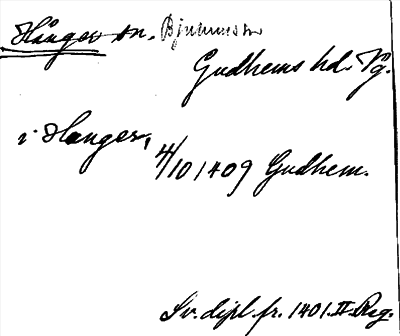 Hånger sn. Bjurums sn
Gudhems hd. Vg.
i Hanger, 4/10 1409 Gudhem.
Sv. dipl. fr. 1401 II Reg.